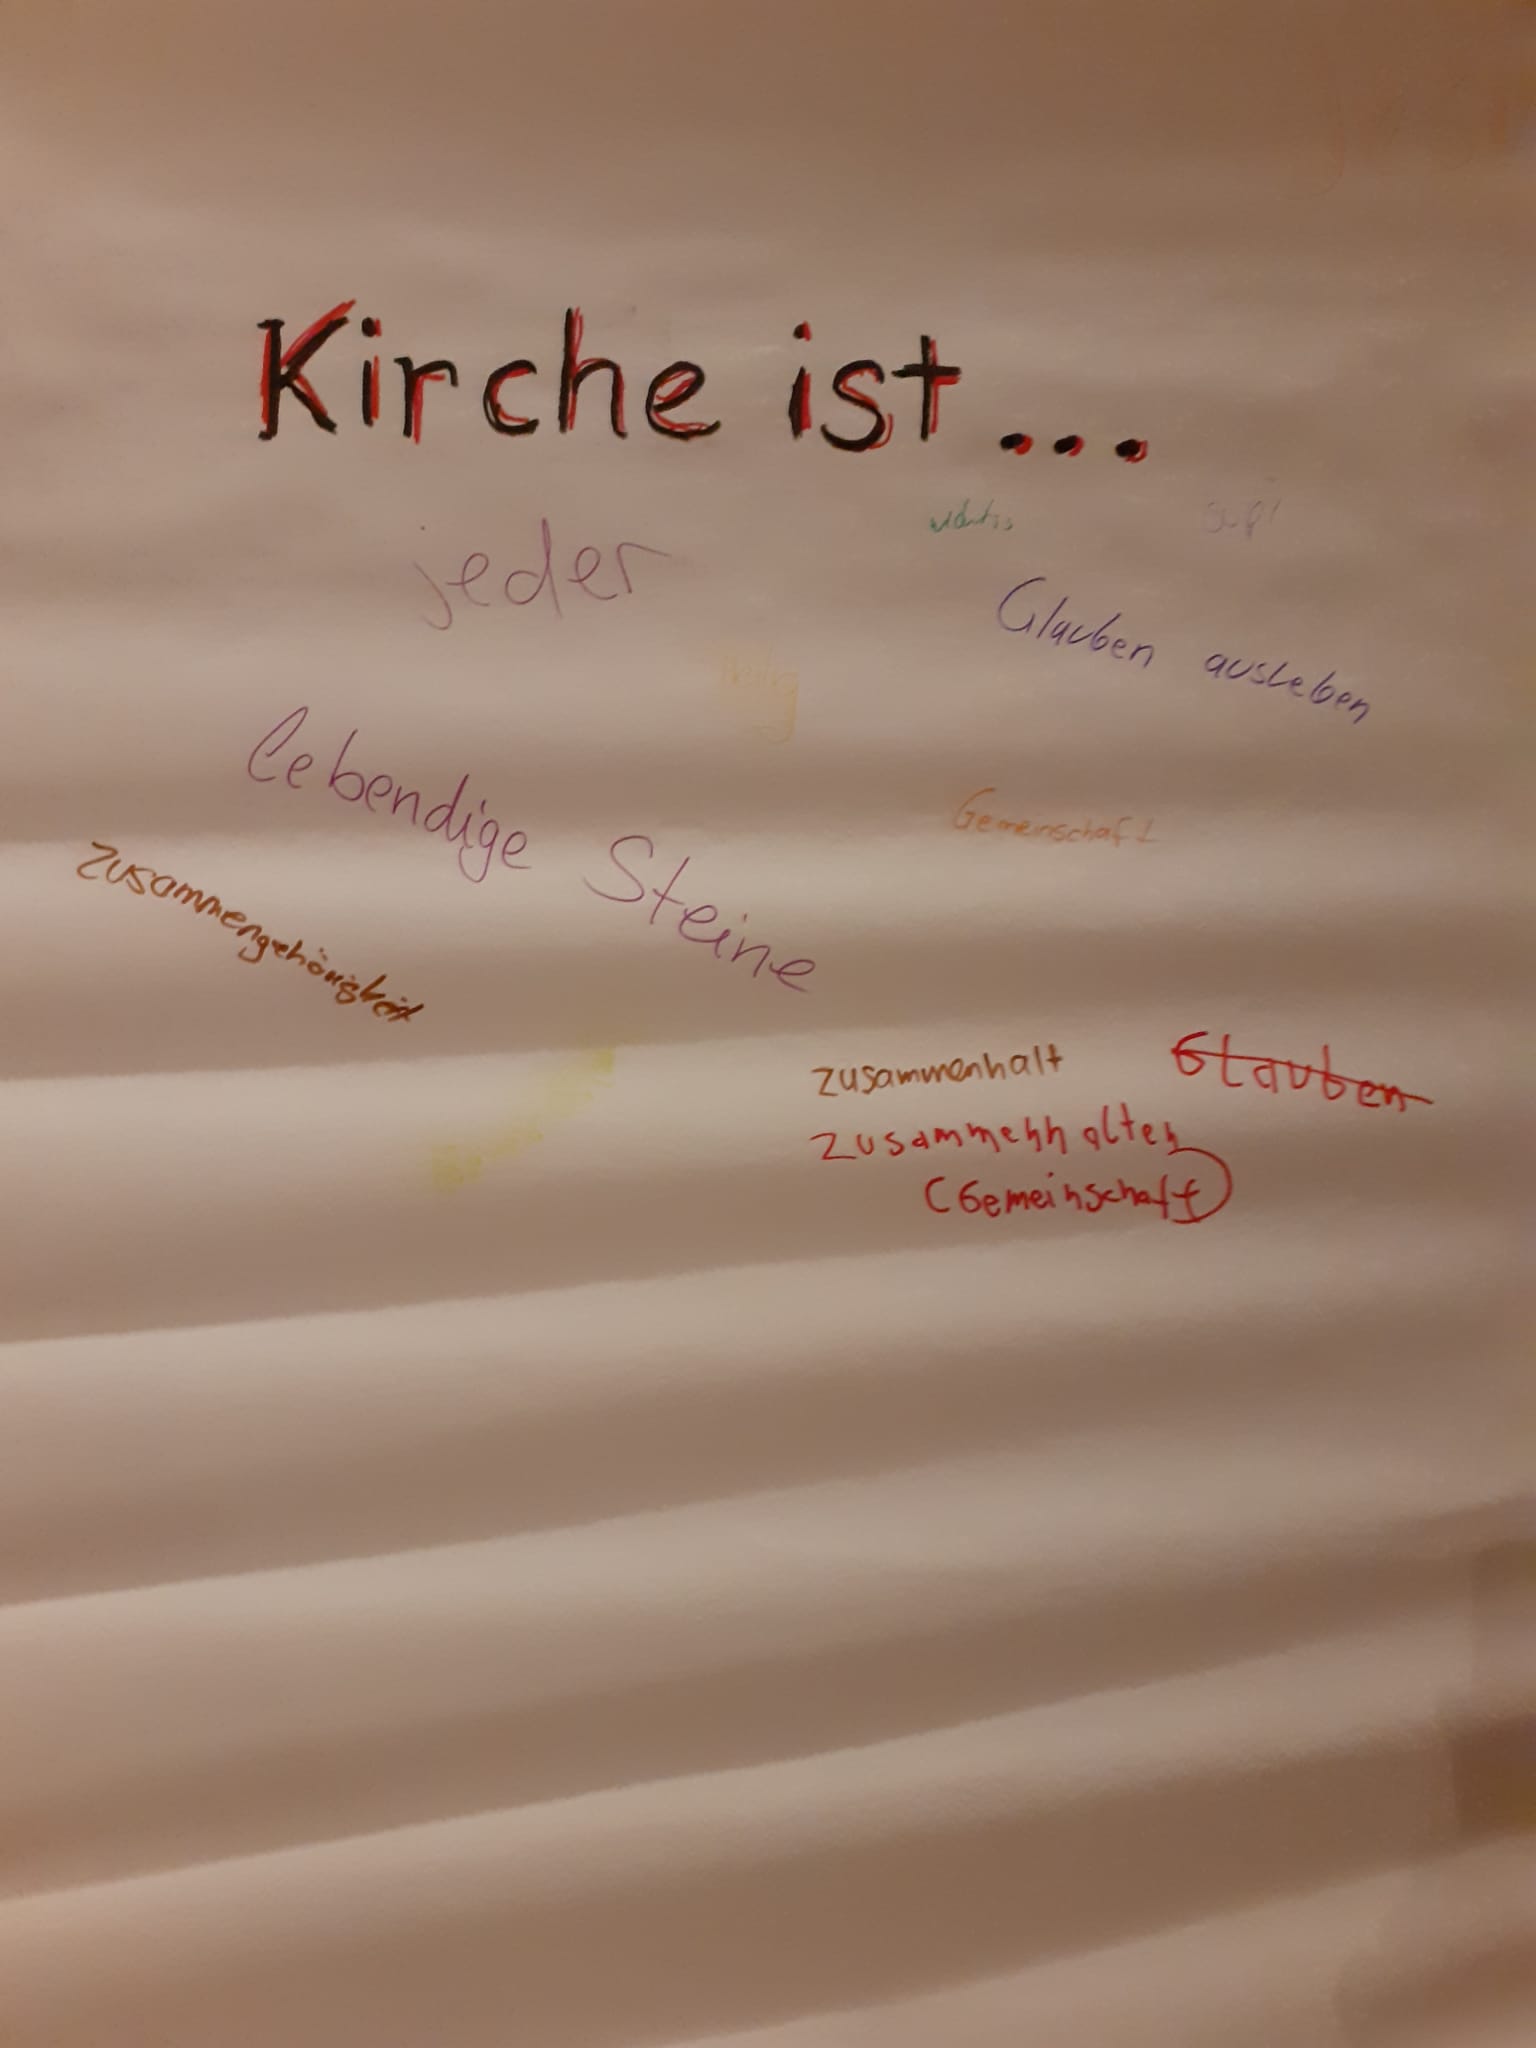 Kirche ist...
jeder
wichtig
Glauben ausleben
heilig
lebendige Steine
Gemeinschaft
Zusammengehörigkeit
zusammenhalt
Glauben
zusammenhalten
(Gemeinschaft)